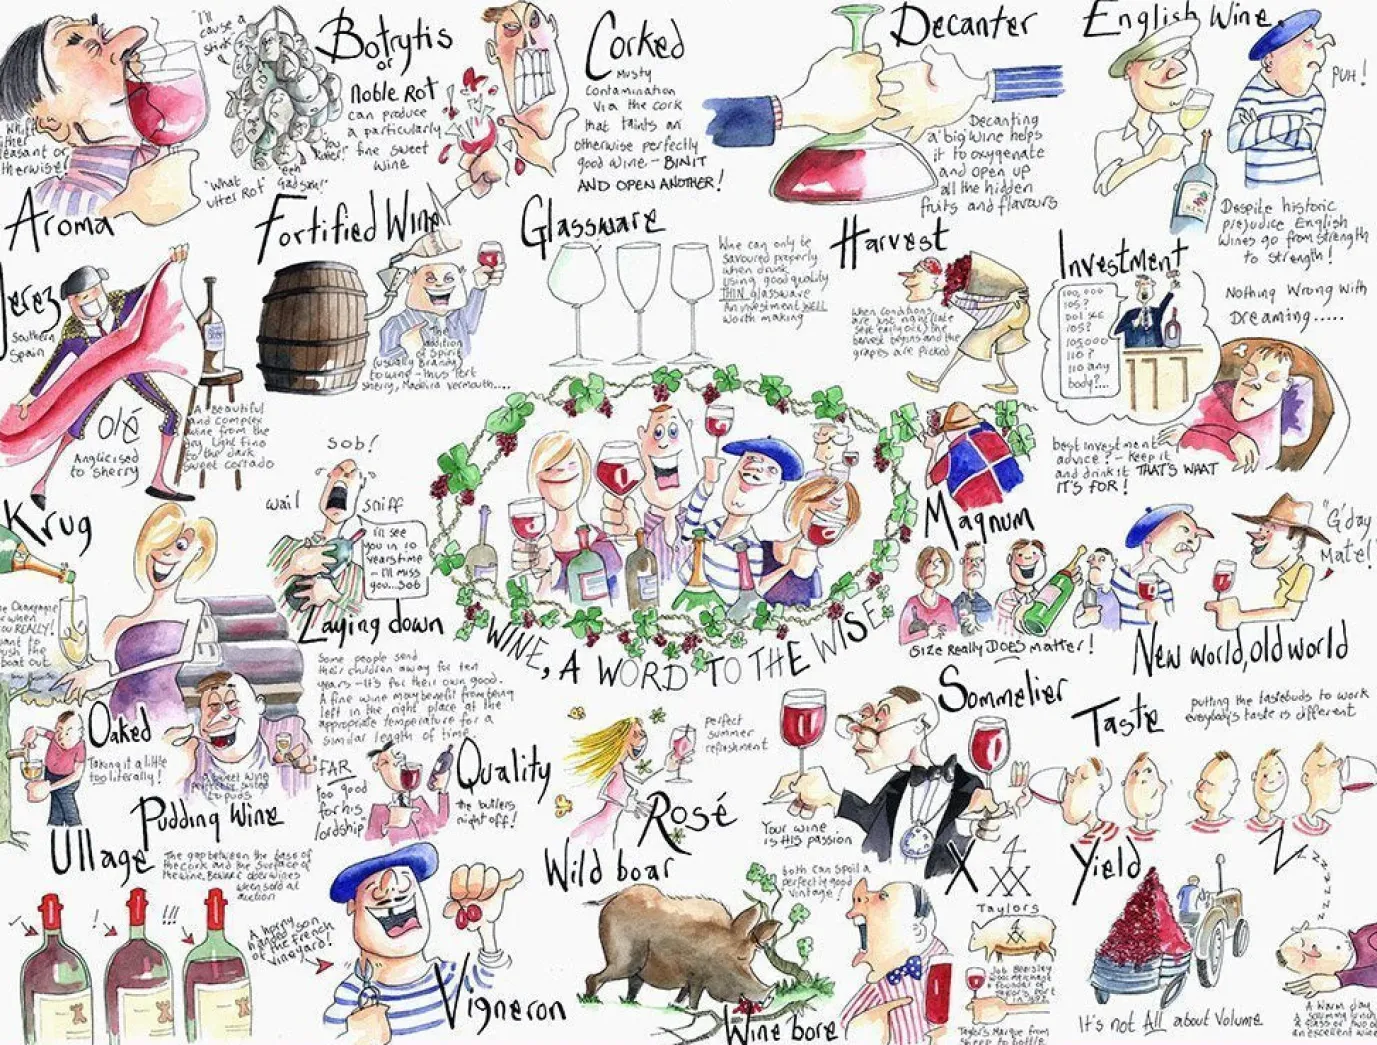 "I'll
cause a
stink"
"What
utter Rot"
"You
Rotter!"
Aroma
Botrytis
or
noble Rot
can produce
a particularly
fine sweet
wine
Corked
Musty
contamination
via the cork
that taints an
otherwise perfectly
good wine - BIN IT
AND OPEN ANOTHER!
Decanter
Decanting
a big wine helps
it to oxygenate
and open up
all the hidden
fruits and flavours
English Wine
PUH!
Despite historic
prejudice English
wines go from strength
to strength!
Jerez
Southern
Spain
Olé
Anglicised
to sherry
A beautiful
and complex
wine from the
dry light fino
to the dark
sweet
Fortified Wine
The
addition
of spirit
(usually Brandy)
to wine - thus Port
sherry, Madeira vermouth....
Glassware
Wine can only be
savoured properly
when drunk
using good quality
THIN glassware
An investment WELL
worth making
Harvest
When conditions
are just right (late
sept early oct) the
harvest begins and the
grapes are picked
Investment
100,000
105?
110?
110 any
body?...
Nothing Wrong with
Dreaming.....
best investment
advice? - keep it
and drink it THAT'S WHAT
IT'S FOR!
Krug
when
you REALLY!
want to
push the
boat out
sob!
wail
sniff
I'll see
you in 10
years time
- I'll miss
you...sob
Laying down
Some people send
their children away for ten
years - it's for their own good.
A fine wine may benefit from being
left in the right place at the
appropriate temperature for a
similar length of time.
WINE, A WORD TO THE WISE
Magnum
Size Really DOES matter!
"G'day
Mate!"
New world, old world
Oaked
Taking it a little
too literally!
Pudding Wine
a sweet wine
perfectly suited
to puds
Quality
"FAR
too good
for his
lordship"
the butlers
night off!
perfect
summer
refreshment
Rosé
Sommelier
Your wine
is HIS passion
Taste
putting the tastebuds to work
everybody's taste is different
Ullage
The gap between the base of
the cork and the surface of
the wine. Beware older wines
when sold at
auction
!
!!!
A horny
handed son
of the French
vineyard!
Vigneron
Wild boar
both can spoil a
perfectly good
vintage!
Wine bore
X
Taylors
Job Bearsley
founder of
Taylor's Port
in 1692
Taylor's Marque from
sheep to bottle
Yield
It's not All about Volume
Zzzzzzz
A warm day
a
glass or two of
an excellent wine